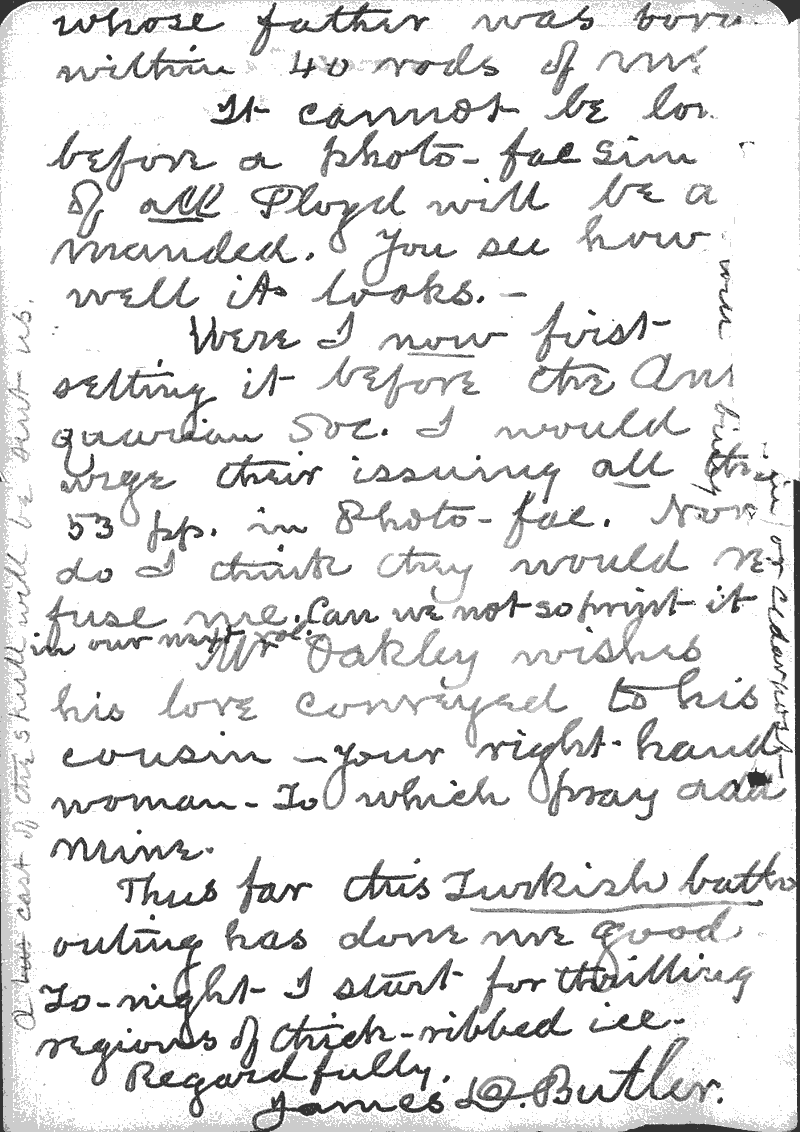 whose father was born
within 40 rods of me
It cannot be lon
before a photo-fac sim
of all Ployd will be a
manded. You see how
well its looks. —
Were I now first
setting it before the Ant
quarian Soc. I would
urge their issuing all the
53 pp. in Photo-fac. Nor
do I think they would re
fuse me. Can we not so print it
in our next vol.
Mr Oakley wishes
his love conveyed to his
cousin — your right-hand
woman - To which pray add
mine.
Thus far this Turkish bath
outing has done me good
To-night I start for thrilling
regions of thick-ribbed ice.
Regardfully,
James D. Butler.
a cast of the skull will be sent us.
in or cedar post